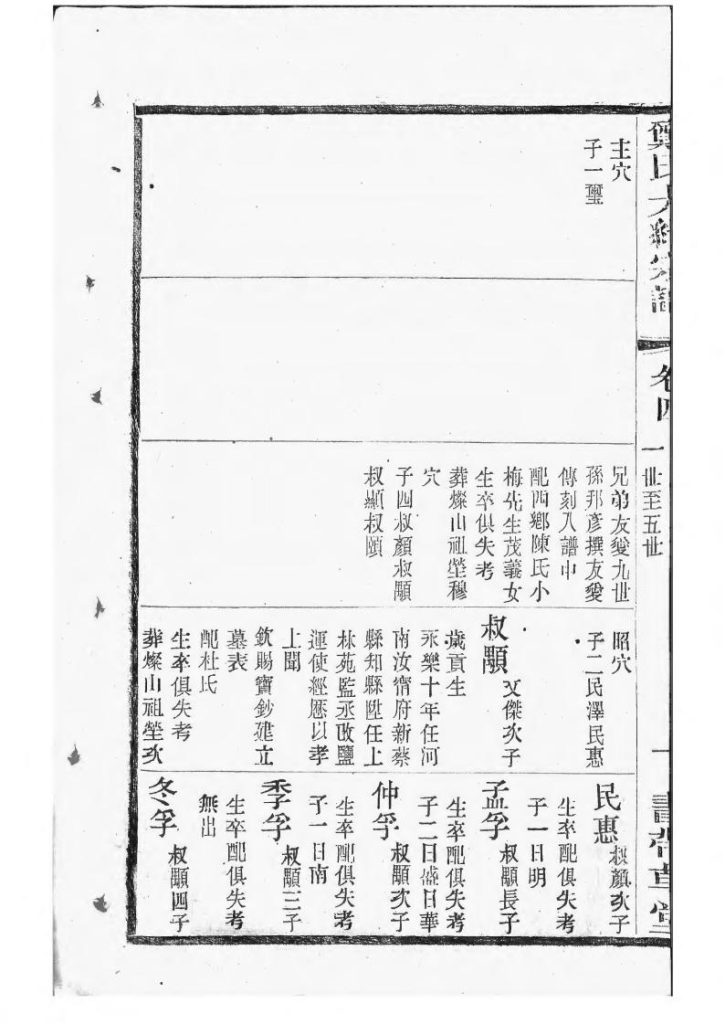 鄭氏大統宗譜
卷四
一世至五世
一
書帶草堂
主穴
子一璽
兄弟友愛九世
孫邦彥撰友愛
傳刻入譜中
配西鄉陳氏小
梅先生茂義女
生卒俱失考
葬燦山祖塋穆
穴
子四叔顏叔顒
叔顯叔頤
昭穴
子二民澤民惠
叔顒
文傑次子
歲貢生
永樂十年任河
南汝甯府新蔡
縣知縣陞任上
林苑監丞改鹽
運使經歷以孝
上聞
欽賜寶鈔建立
墓表
配杜氏
生卒俱失考
葬燦山祖塋次
民惠
叔顏次子
生卒配俱失考
子一日明
孟孚
叔顒長子
生卒配俱失考
子二日盛日華
仲孚
叔顒次子
生卒配俱失考
子一日南
季孚
叔顒三子
生卒配俱失考
無出
冬孚
叔顒四子